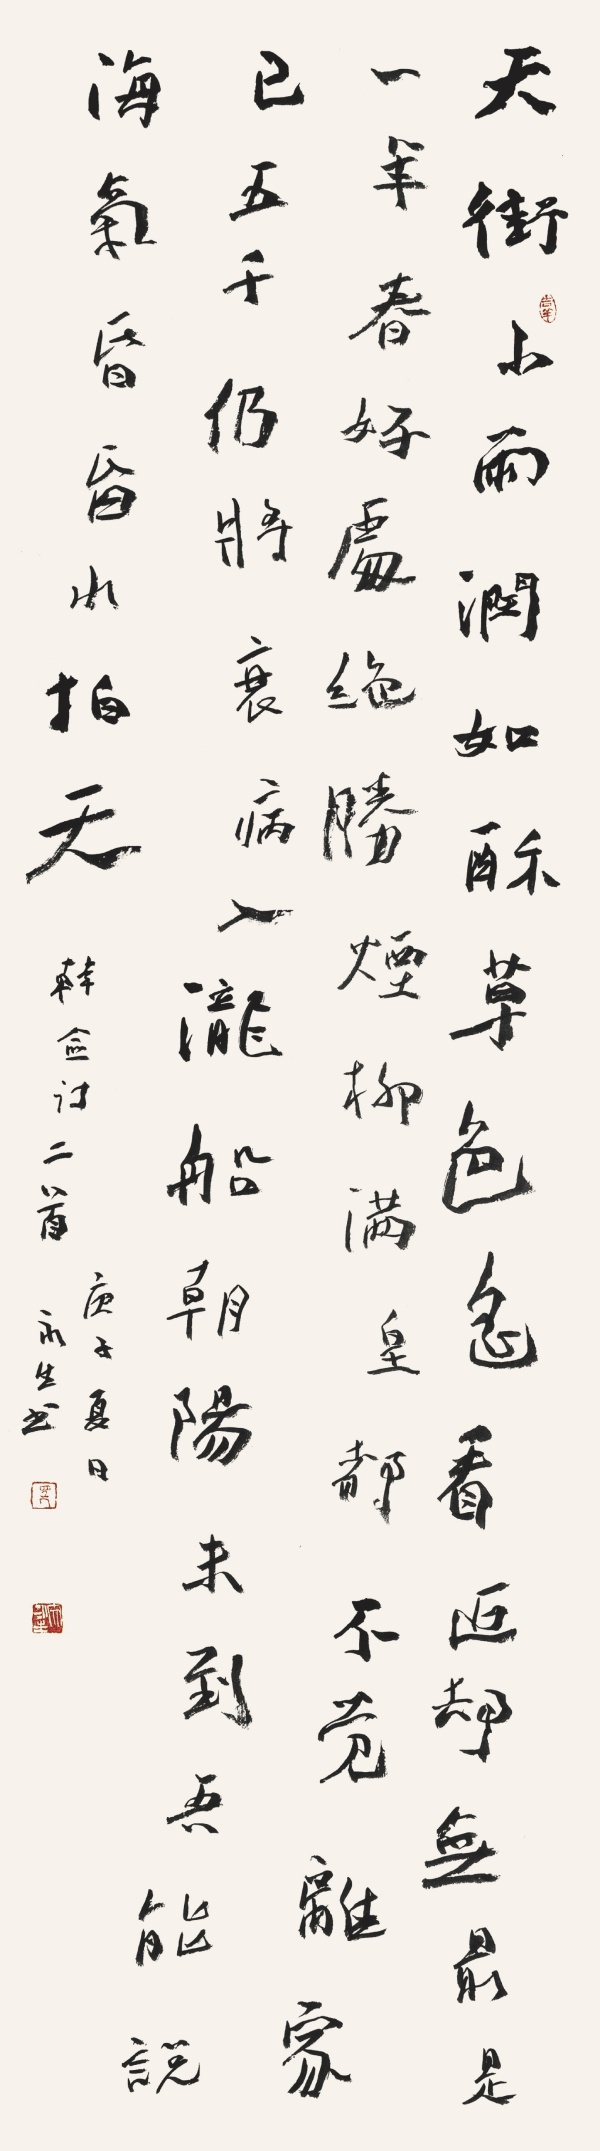 天街小雨潤如酥草色遙看近却無最是
一年春好處絕勝煙柳滿皇都不觉離家
已五千仍將衰病入瀧船朝陽未到吾能說
海氣昏昏水拍天
韓愈诗二首
庚子夏日
永生书